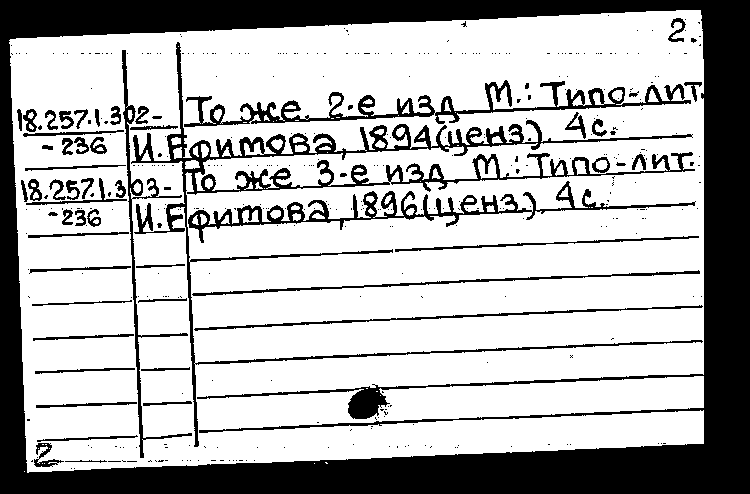 2.
18.257.1.302- То же. 2-е изд. М.: Типо-лит.
-236 И. Ефимова, 1894(ценз.). 4с.
18.257.1.303- То же. 3-е изд. М.: Типо-лит.
-236 И. Ефимова, 1896(ценз.). 4с.
2